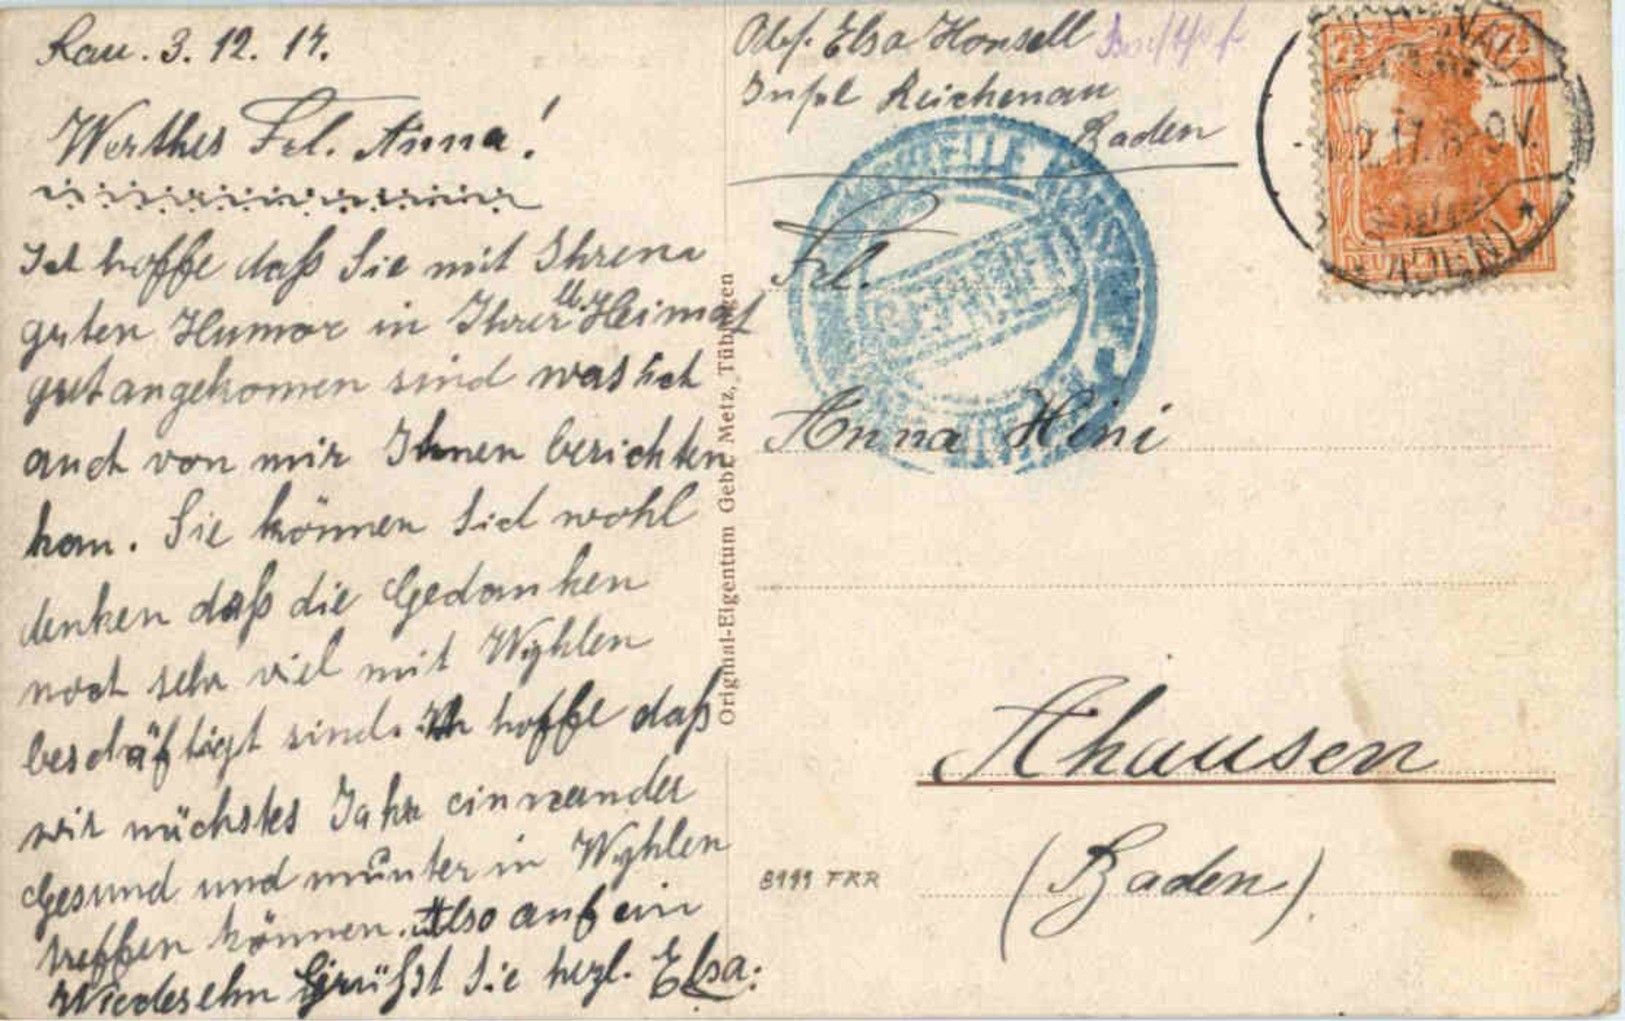 Rau. 3. 12. 17.
Werthes Frl. Anna!
Ich hoffe daß Sie mit Ihrem
guten Humor in Ihrer lb. Heimat
gut angekomen sind was ich
auch von mir Ihnen berichten
kan. Sie können Sich wohl
denken daß die Gedanken
noch sehr viel mit Wyhlen
beschäftigt sind. Ich hoffe daß
wir nächstes Jahr einnander
Gesund und munter in Wyhlen
treffen können. Also auf ein
Wiedersehn Grüßt Sie herzl. Elsa.
Original-Eigentum Gebr. Metz, Tübingen
Abs. Elsa Honsell
Insel Reichenau
Baden
Frl.
Anna Hini
Ahausen
(Baden)
8999 FRR